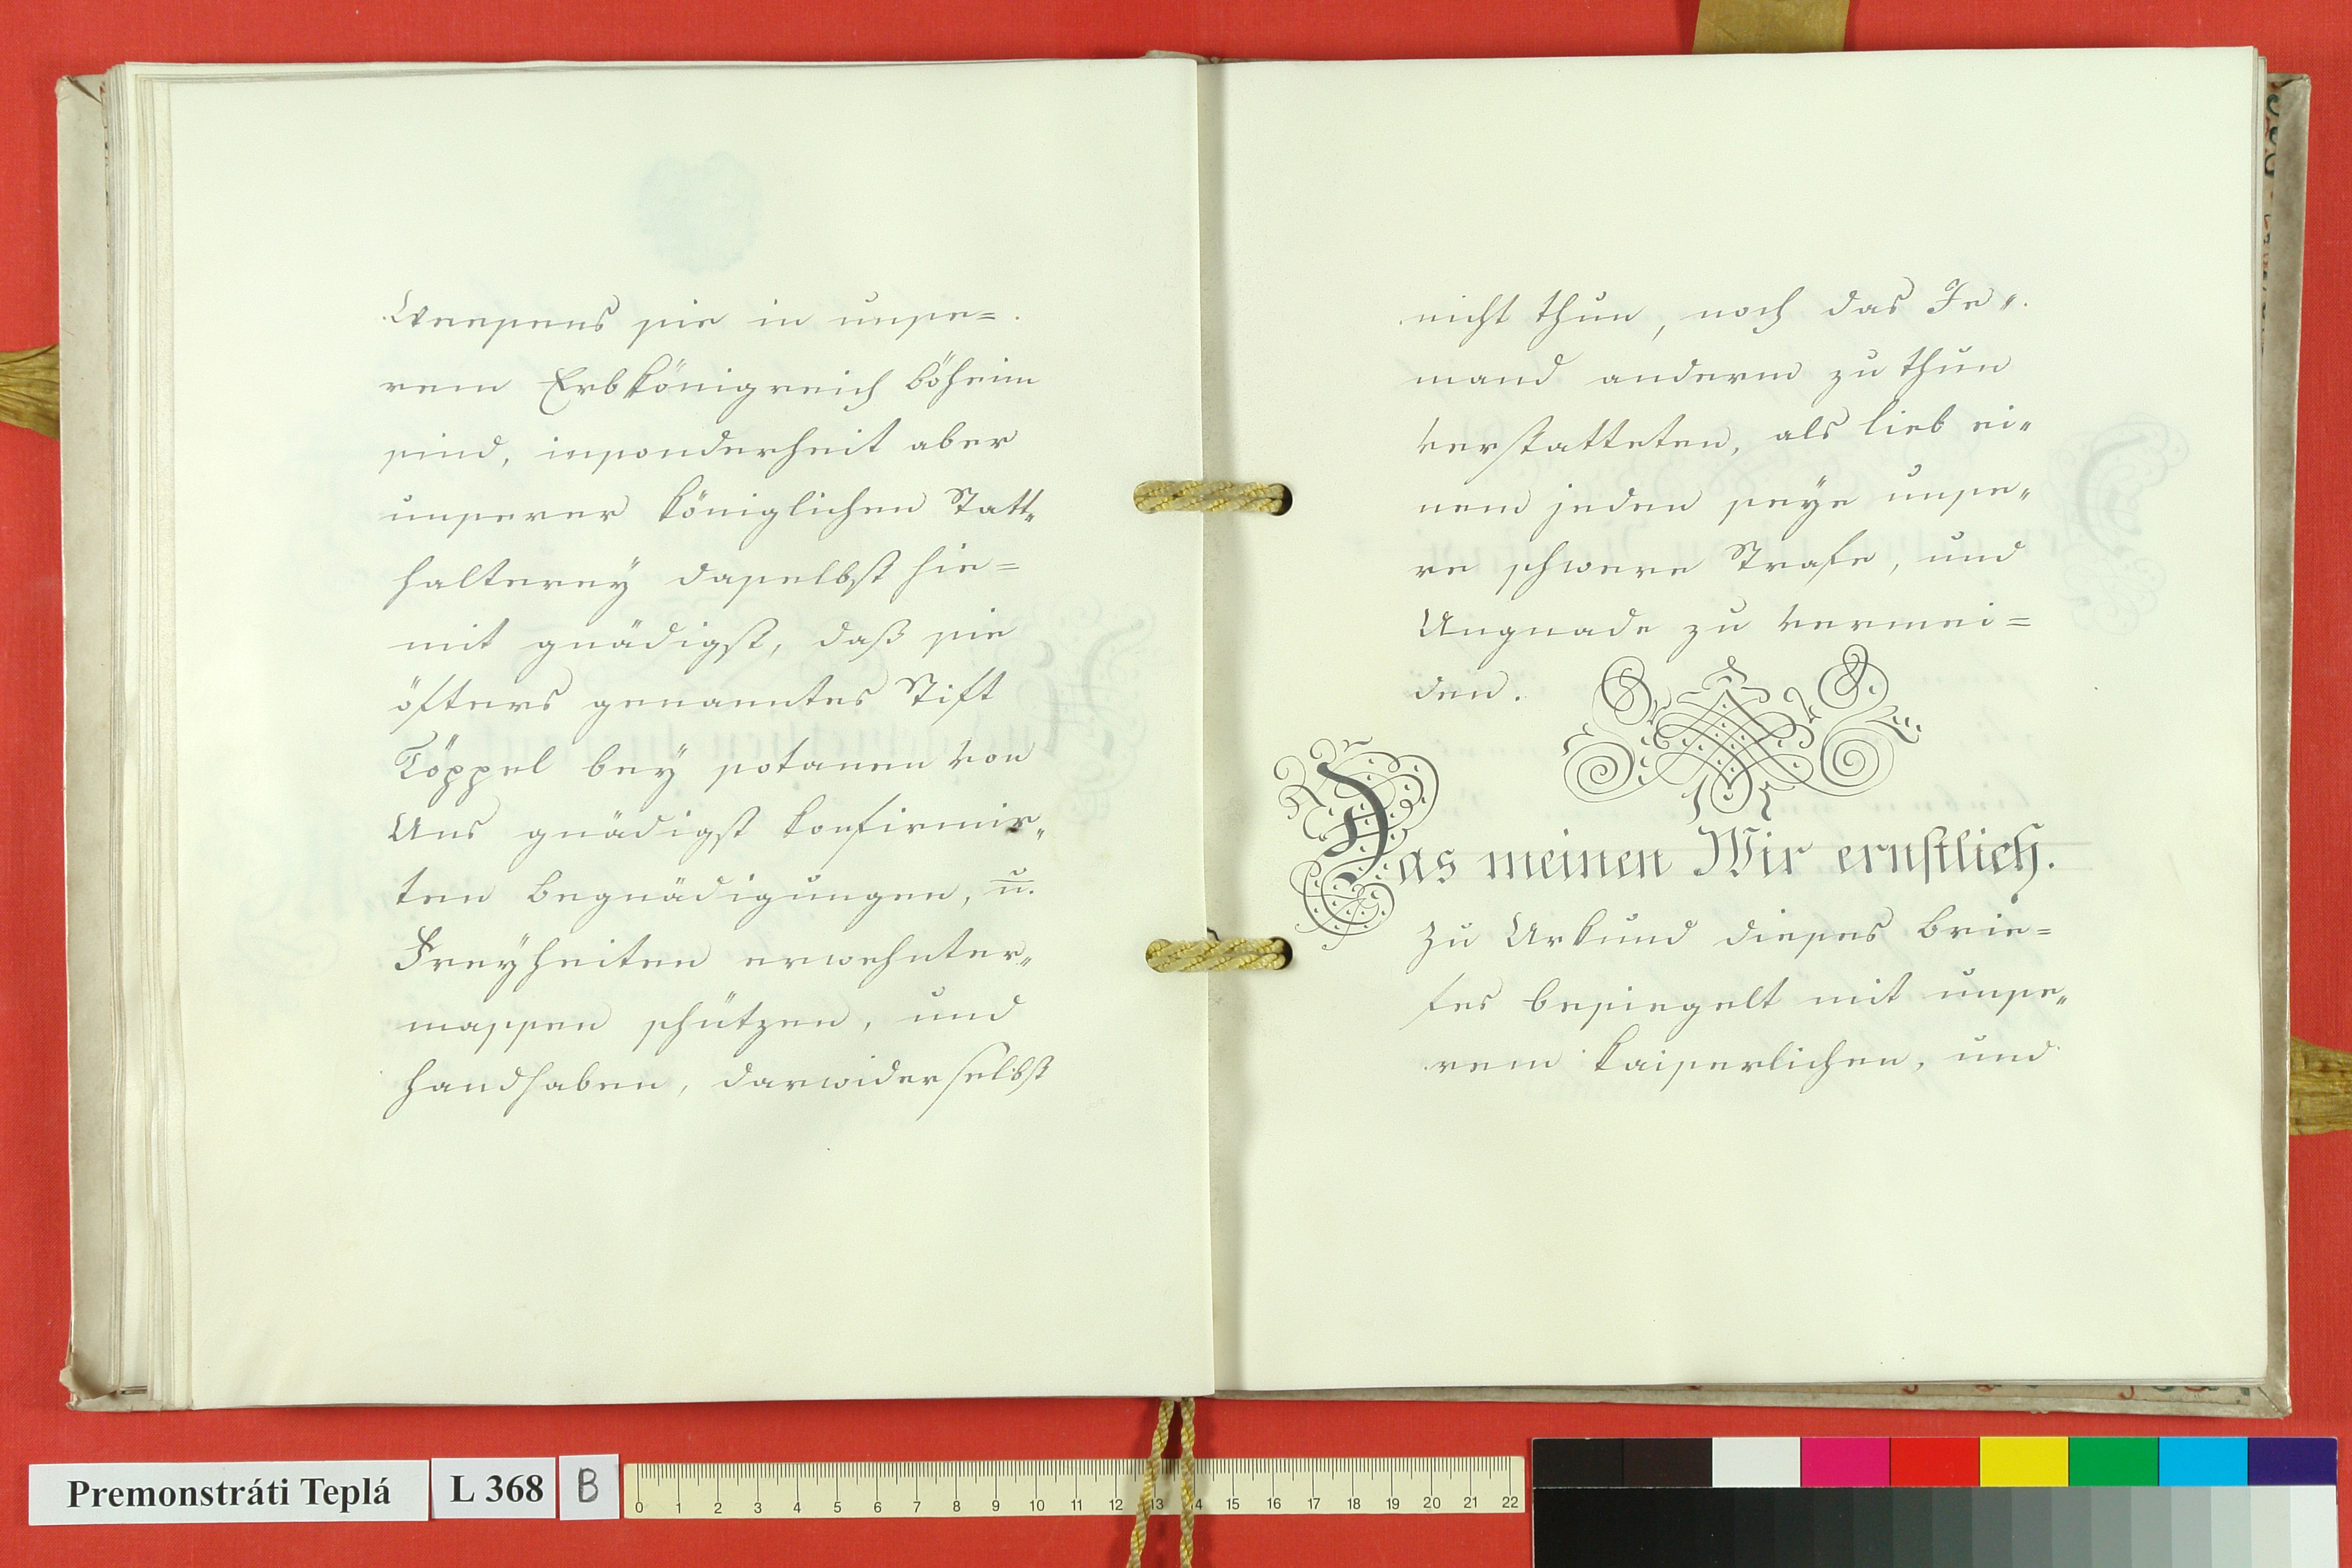 Weesens sie in unse=
rem Erbkönigreich Böheim
sind, insonderheit aber
unserer königlichen Statt„
halterey daselbst hie=
mit gnädigst, daß sie
öfters genanntes Stift
Töppel bey sotanen von
Uns gnädigst konfirmir„
ten Begnädigungen, u.
Freyheiten erwehnter„
massen schützen, und
handhaben, darwider selbst
nicht thun, noch das Je„
mand anderm zu thun
verstatteten, als lieb ei„
nem jeden seye unse„
re schwere Strafe, und
Ungnade zu vermei=
den.
Das meinen Wir ernstlich.
Zu Urkund dieses Brie=
fes besiegelt mit unse„
rem kaiserlichen, und
Premonstráti Teplá L 368 B
0 1 2 3 4 5 6 7 8 9 10 11 12 13 14 15 16 17 18 19 20 21 22